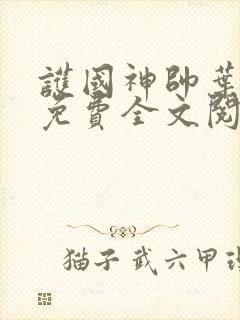 護國神帥葉
免費全文閱
猫子武六甲